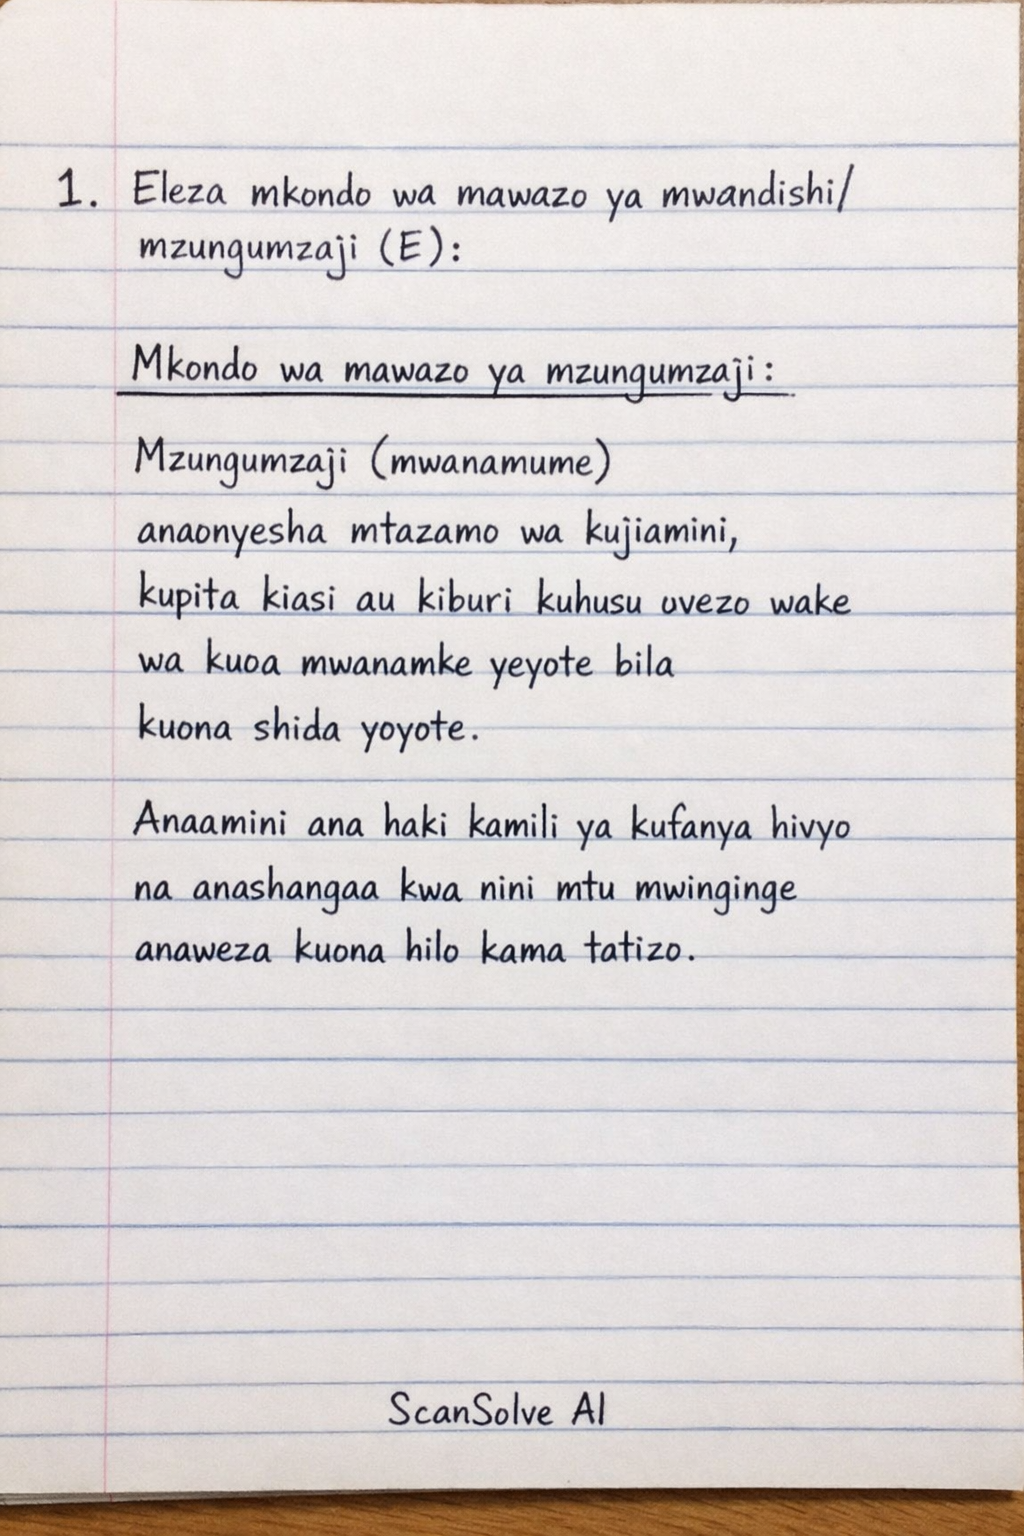 1. Eleza mkondo wa mawazo ya mwandishi/
mzungumzaji (E):
Mkondo wa mawazo ya mzungumzaji:
Mzungumzaji (mwanamume)
anaonyesha mtazamo wa kujiamini,
kupita kiasi au kiburi kuhusu uvezo wake
wa kuoa mwanamke yeyote bila
kuona shida yoyote.
Anaamini ana haki kamili ya kufanya hivyo
na anashangaa kwa nini mtu mwinginge
anaweza kuona hilo kama tatizo.
ScanSolve AI